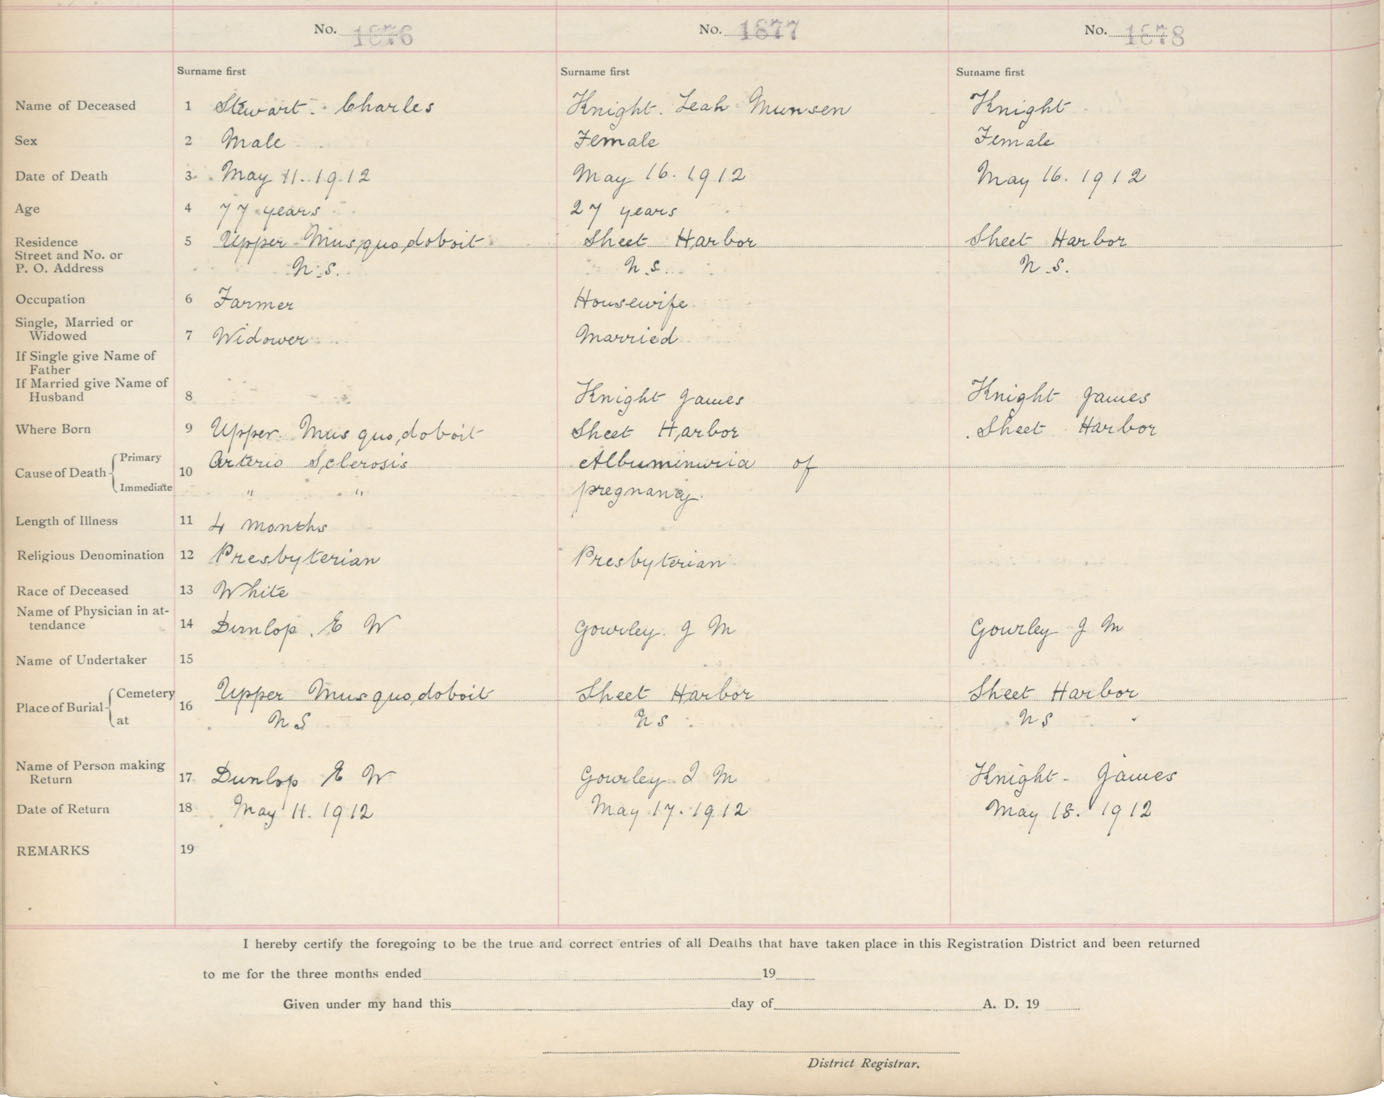 No. 1876 No. 1877 No. 1878
Surname first Surname first Surname first
Name of Deceased 1 Stewart - Charles Knight. Leah Munsen Knight
Sex 2 Male Female Female
Date of Death 3 May 11. 1912 May 16. 1912 May 16. 1912
Age 4 77 years 27 years
Residence 5 Upper Musquodoboit Sheet Harbor Sheet Harbor
Street and No. or
P. O. Address N.S. N.S. N.S.
Occupation 6 Farmer Housewife
Single, Married or
Widowed 7 Widower Married
If Single give Name of
Father
If Married give Name of
Husband 8 Knight James Knight James
Where Born 9 Upper Musquodoboit Sheet Harbor Sheet Harbor
Cause of Death Primary 10 Arterio Sclerosis Albuminuria of
Immediate " " pregnancy.
Length of Illness 11 4 months
Religious Denomination 12 Presbyterian Presbyterian
Race of Deceased 13 White
Name of Physician in at-
tendance 14 Dunlop. E W Gourley J M Gourley J M
Name of Undertaker 15
Place of Burial Cemetery 16 Upper Musquodoboit Sheet Harbor Sheet Harbor
at N S N S N S
Name of Person making
Return 17 Dunlop E W Gourley J M Knight - James
Date of Return 18 May 11. 1912 May 17. 1912 May 18. 1912
REMARKS 19
I hereby certify the foregoing to be the true and correct entries of all Deaths that have taken place in this Registration District and been returned
to me for the three months ended 19
Given under my hand this day of A. D. 19
District Registrar.